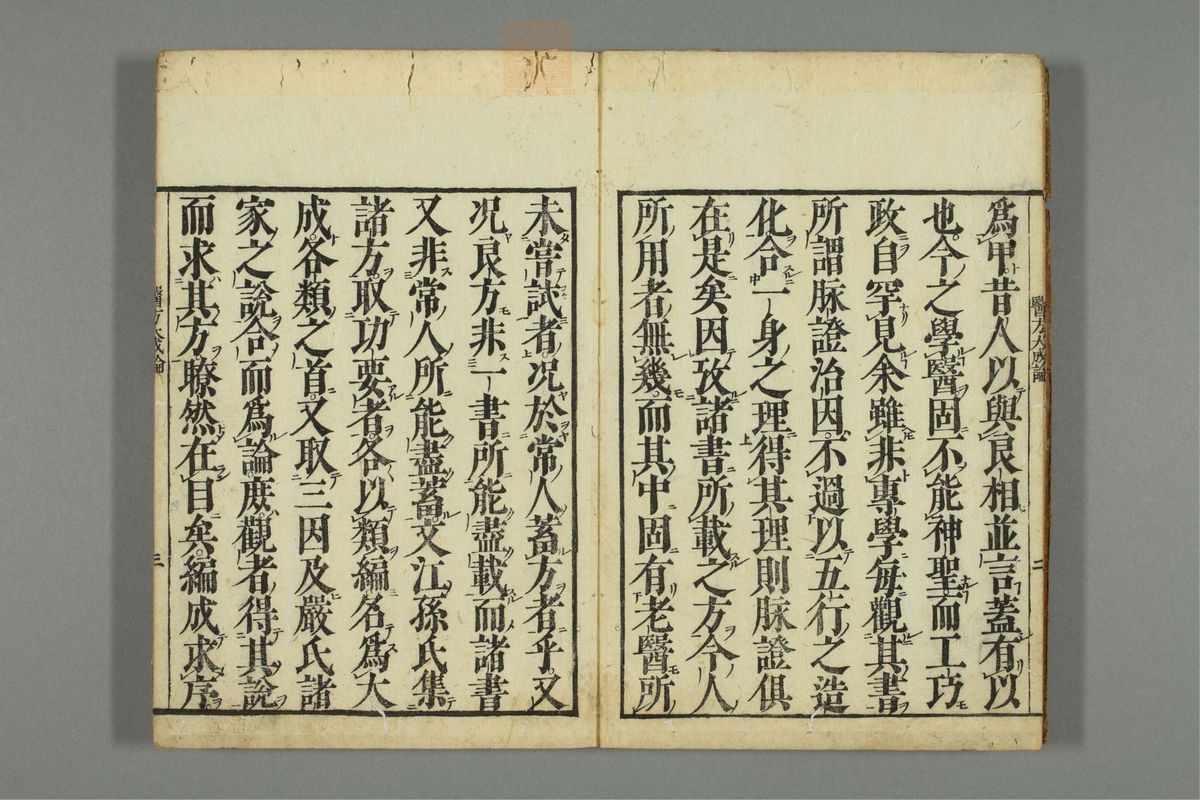 爲甲昔人以與良相並言蓋有以
也今之學醫固不能神聖而工巧
政自罕見余雖非專學每觀其書
所謂脉證治因不過以五行之造
化合一身之理得其理則脉證俱
在是矣因攷諸書所載之方今人
所用者無幾而其中固有老醫所
未嘗試者况於常人蓄方者乎又
况良方非一書所能盡載而諸書
又非常人所能盡蓄文江孫氏集
諸方取功要者各以類編名爲大
成各類之首又取三因及嚴氏諸
家之說合而爲論庶觀者得其說
而求其方瞭然在目矣編成求序
醫方大成論
二
醫方大成論
三